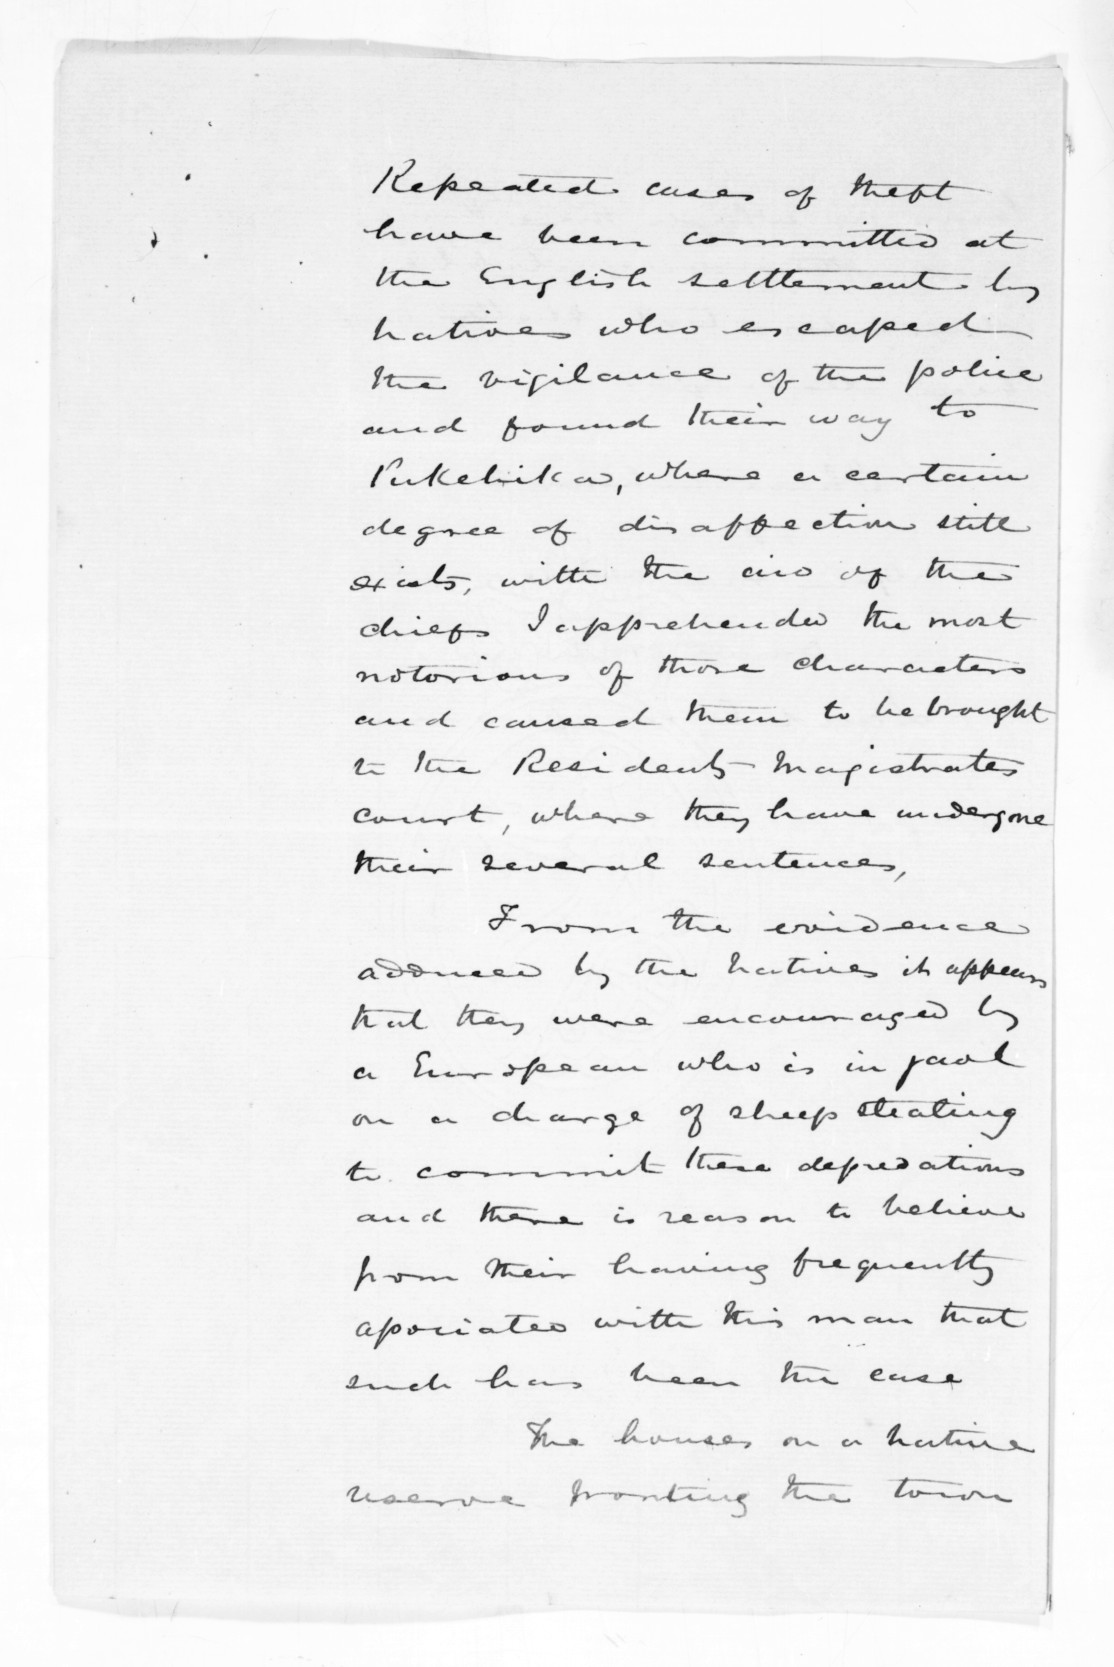 Repeated cases of theft
have been committed at
the English settlement by
natives who escaped
the vigilance of the police
and found their way to
Pukehika, where a certain
degree of disaffection still
exists, with the aid of the
chiefs I apprehended the most
notorious of those characters
and caused them to be brought
to the Residents Magistrates
court, where they have undergone
their several sentences,
From the evidence
adduced by the natives it appears
that they were encouraged by
a European who is in jaol
on a charge of sheep stealing
to commit these depredations
and there is reason to believe
from their having frequently
associated with this man that
such has been the case
The houses on a native
reserve fronting the town